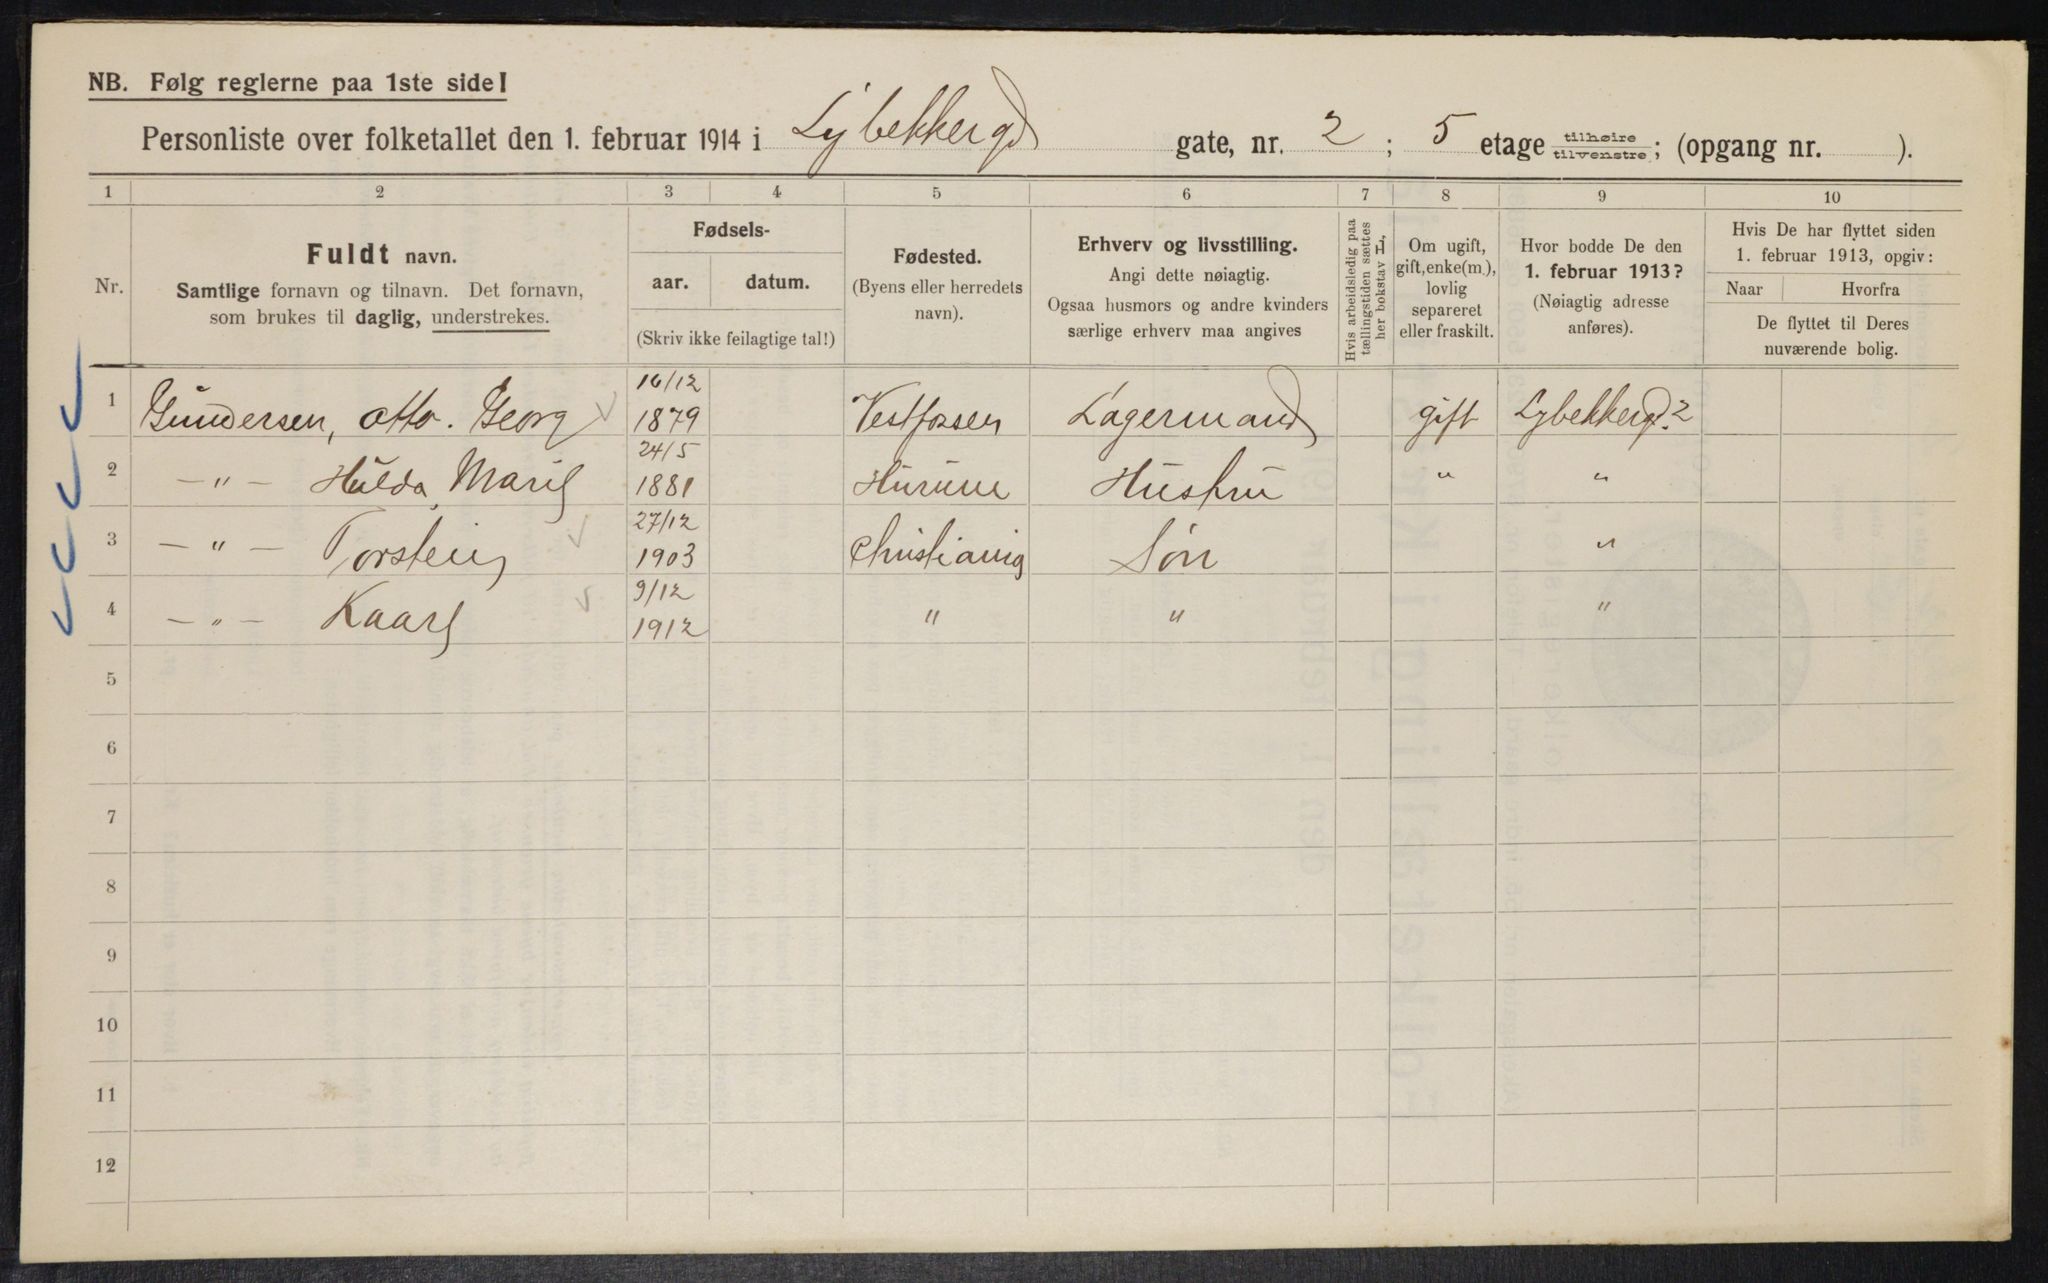 NB. Følg reglerne paa 1ste side!
Personliste over folketallet den 1. februar 1914 i Lybekkergd gate, nr. 2 ; 5 etage tilhøire/tilvenstre; (opgang nr. ).
1 2 3 4 5 6 7 8 9 10
Nr.
Fuldt navn.
Samtlige fornavn og tilnavn. Det fornavn,
som brukes til daglig, understrekes.
Fødsels-
aar. datum.
(Skriv ikke feilagtige tal!)
Fødested.
(Byens eller herredets
navn).
Erhverv og livsstilling.
Angi dette nøiagtig.
Ogsaa husmors og andre kvinders
særlige erhverv maa angives
Hvis arbeidsledig paa
tællingstiden sættes
her bokstav L,
Om ugift,
gift, enke(m.),
lovlig
separeret
eller fraskilt.
Hvor bodde De den
1. februar 1913?
(Nøiagtig adresse
anføres).
Hvis De har flyttet siden
1. februar 1913, opgiv:
Naar Hvorfra
De flyttet til Deres
nuværende bolig.
1 Gundersen, Otto. Georg 16/12 1879 Vestfossen Lagermand gift Lybekkergd. 2
2 — " — Hulda Marie 24/5 1881 Hurum Hustru " "
3 — " — Torstein 27/12 1903 Christiania Søn "
4 — " — Kaare 9/12 1912 " " "
5
6
7
8
9
10
11
12